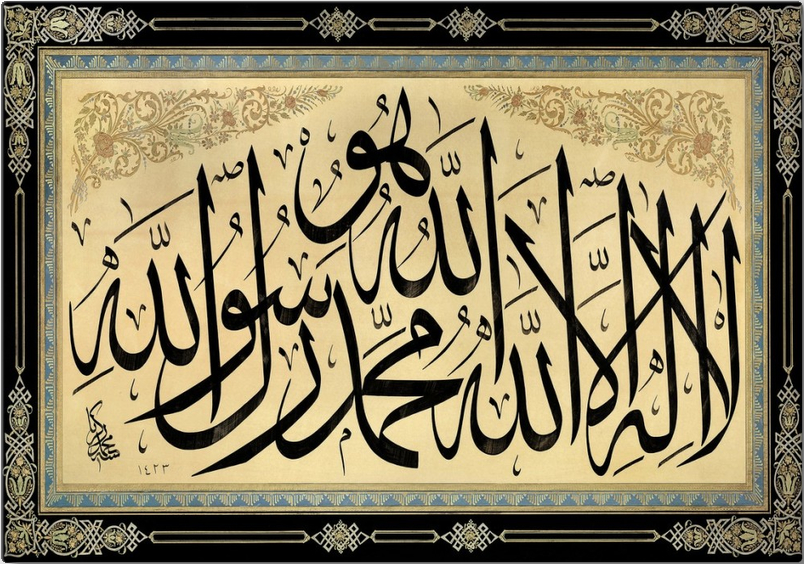 لا اله الا الله هو الله محمد رسول الله
١٤٢٣